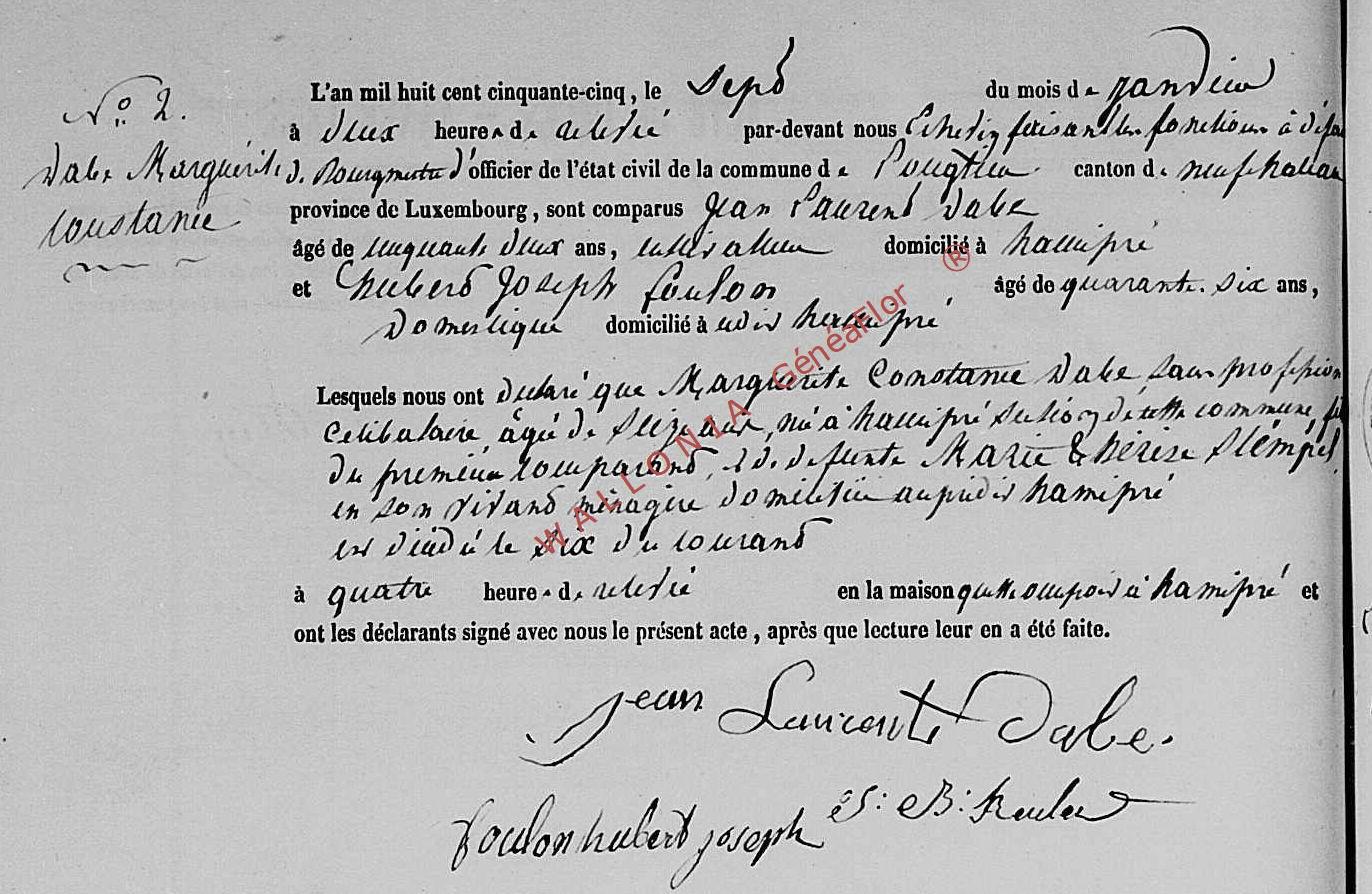 No. 2.
Dabe Marguérite
Constance
L'an mil huit cent cinquante-cinq, le Sept du mois de Janvier
à deux heures de relevée par-devant nous Echevin faisant les fonctions à défaut
d. Bourgmestre d'officier de l'état civil de la commune de canton de neufchateau
province de Luxembourg, sont comparus Jean Laurent Dabe
âgé de cinquante deux ans, cultivateur domicilié à hamipré
et hubert Joseph foulon âgé de quarante-six ans,
Domestique domicilié à udit hamipré
Lesquels nous ont déclaré que Marguerite Constance Dabe sans profession
Celibataire, âgée de Seize ans, née à hamipré Section de cette commune, fille
du premier comparant, et de defunte Marie thérèse Slémpel,
en son vivant ménagère domiciliée au prédit hamipré
est décédée le six du courant
à quatre heures de relevée en la maison quelle occupoit à hamipré et
ont les déclarants signé avec nous le présent acte, après que lecture leur en a été faite.
jean Laurent Dabe.
foulon hubert joseph J: B:
WALLONIA GénéaFlor ®